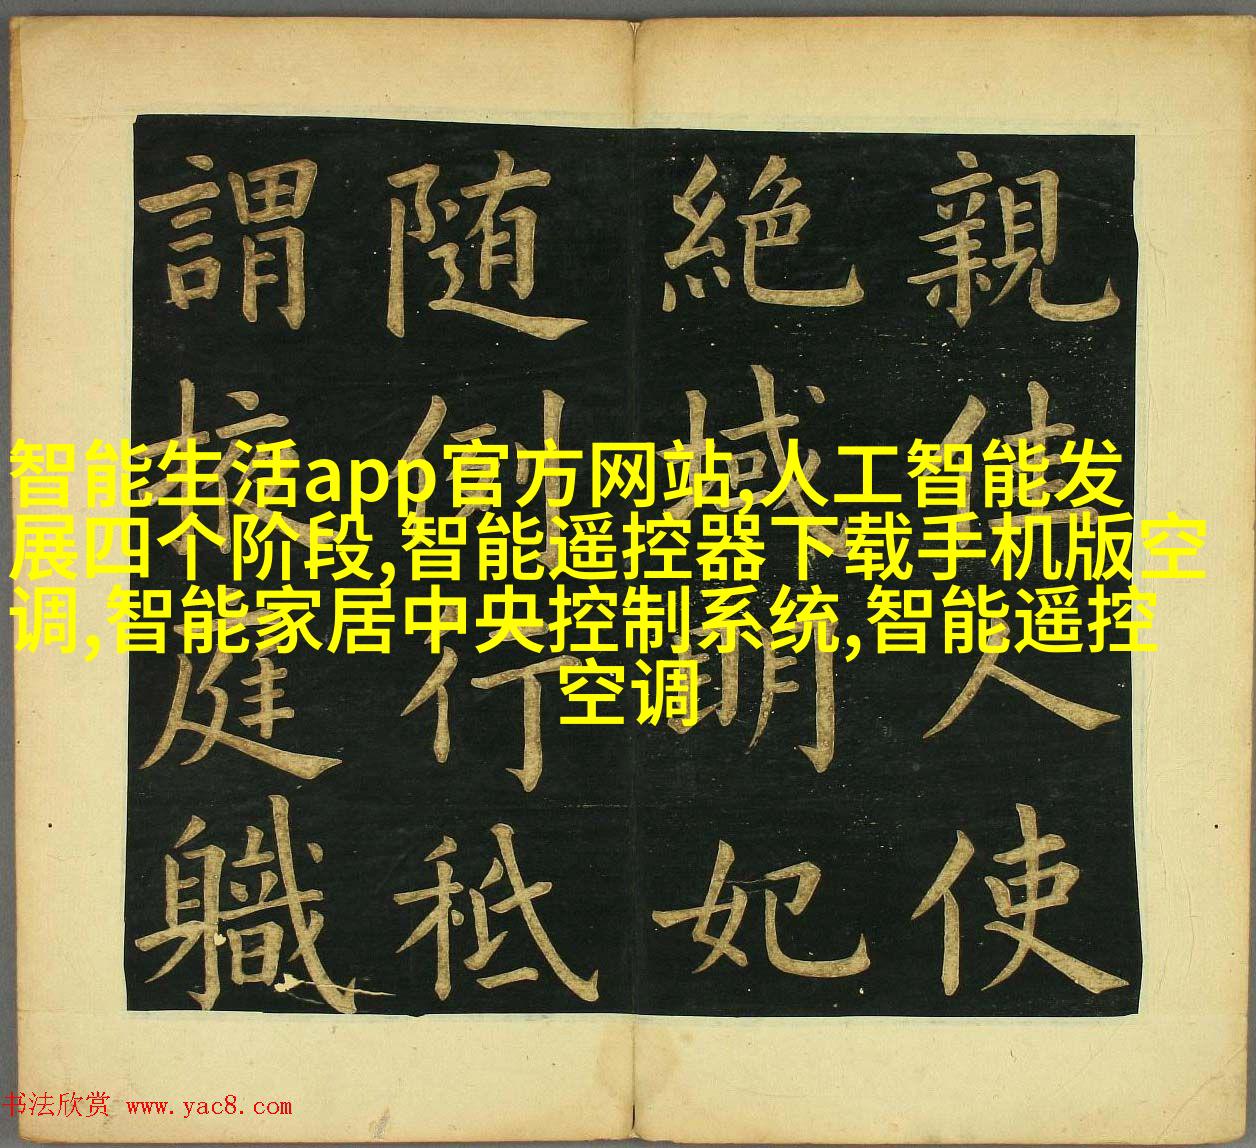 親人使
絶域明妃
随行秪
謂庭軄
智能生活app官方网站,人工智能发
展四个阶段,智能遥控器下载手机版空
调,智能家居中央控制系统,智能遥控
空调
书法欣赏 www.yac8.com